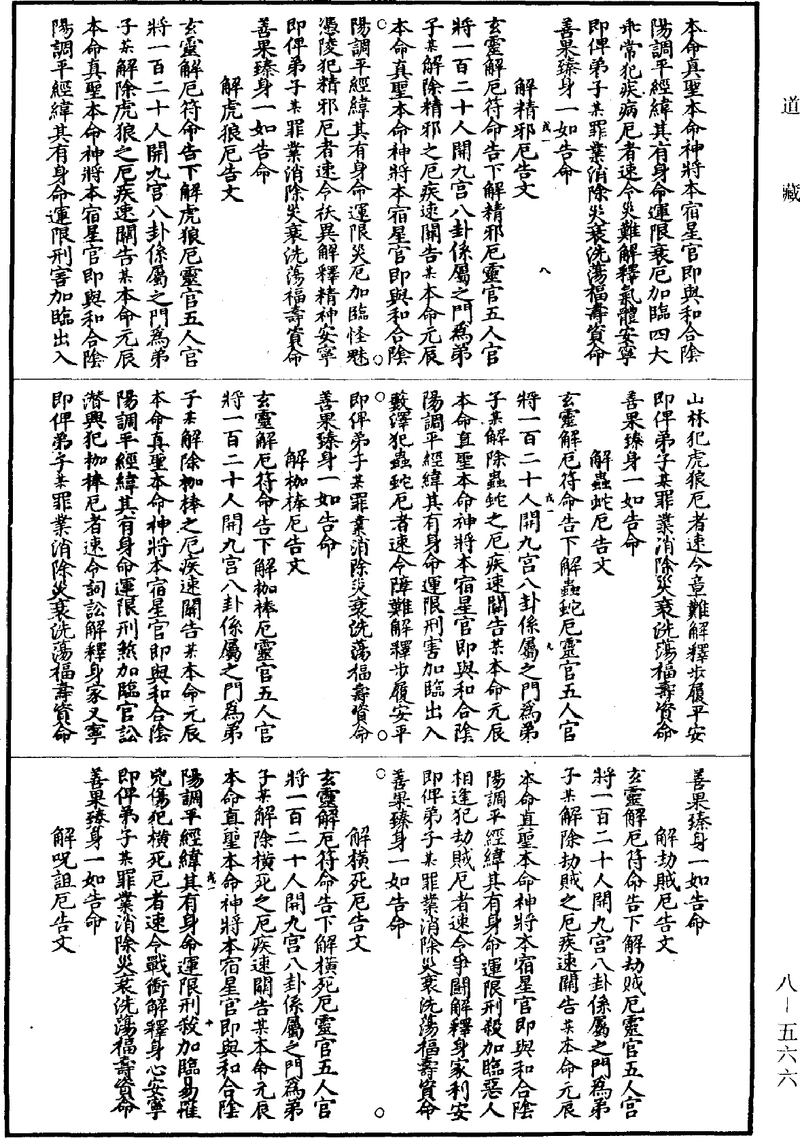 道藏
本命真聖本命神將本宿星官即與和合陰
陽調平經緯其有身命運限衰厄加臨四大
乖常犯疾病厄者速令災難解釋氣體安寧
即俾弟子某罪業消除災衰洗蕩福壽資命
善果臻身一如告命
解精邪厄告文
玄靈解厄符命告下解精邪厄靈官五人官
將一百二十人開九宮八卦係屬之門為弟
子某解除精邪之厄疾速關告某本命元辰
本命真聖本命神將本宿星官即與和合陰
陽調平經緯其有身命運限災厄加臨怪魅
憑陵犯精邪厄者速令祅異解釋精神安寧
即俾弟子某罪業消除災衰洗蕩福壽資命
善果臻身一如告命
解虎狼厄告文
玄靈解厄符命告下解虎狼厄靈官五人官
將一百二十人開九宮八卦係屬之門為弟
子某解除虎狼之厄疾速關告某本命元辰
本命真聖本命神將本宿星官即與和合陰
陽調平經緯其有身命運限刑害加臨出入
山林犯虎狼厄者速令章難解釋步履平安
即俾弟子某罪業消除災衰洗蕩福壽資命
善果臻身一如告命
解蟲蛇厄告文
玄靈解厄符命告下解蟲蛇厄靈官五人官
將一百二十人開九宮八卦係屬之門為弟
子某解除蟲蛇之厄疾速關告某本命元辰
本命真聖本命神將本宿星官即與和合陰
陽調平經緯其有身命運限刑害加臨出入
藪澤犯蟲蛇厄者速令障難解釋步履安平
即俾弟子某罪業消除災衰洗蕩福壽資命
善果臻身一如告命
解枷棒厄告文
玄靈解厄符命告下解枷棒厄靈官五人官
將一百二十人開九宮八卦係屬之門為弟
子某解除枷棒之厄疾速關告某本命元辰
本命真聖本命神將本宿星官即與和合陰
陽調平經緯其有身命運限刑煞加臨官訟
潛興犯枷棒厄者速令詞訟解釋身家乂寧
即俾弟子某罪業消除災衰洗蕩福壽資命
善果臻身一如告命
解劫賊厄告文
玄靈解厄符命告下解劫賊厄靈官五人官
將一百二十人開九宮八卦係屬之門為弟
子某解除劫賊之厄疾速關告某本命元辰
本命真聖本命神將本宿星官即與和合陰
陽調平經緯其有身命運限刑殺加臨惡人
相逢犯劫賊厄者速令爭鬪解釋身家利安
即俾弟子某罪業消除災衰洗蕩福壽資命
善果臻身一如告命
解橫死厄告文
玄靈解厄符命告下解橫死厄靈官五人官
將一百二十人開九宮八卦係屬之門為弟
子某解除橫死之厄疾速關告某本命元辰
本命真聖本命神將本宿星官即與和合陰
陽調平經緯其有身命運限刑殺加臨易罹
兇傷犯橫死厄者速令戰衝解釋身心安寧
即俾弟子某罪業消除災衰洗蕩福壽資命
善果臻身一如告命
解呪詛厄告文
八—五六六